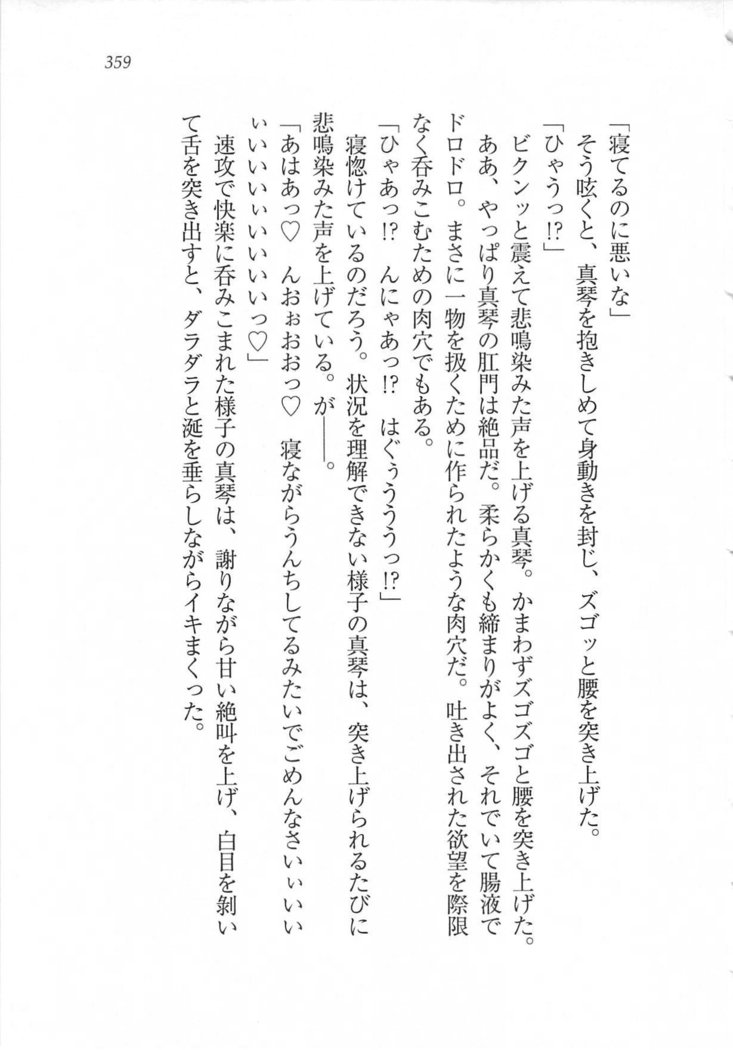 359
「寝てるのに悪いな」
そう呟くと、真琴を抱きしめて身動きを封じ、ズゴッと腰を突き上げた。
「ひゃうっ!?」
ビクンッと震えて悲鳴染みた声を上げる真琴。かまわずズゴズゴと腰を突き上げた。
ああ、やっぱり真琴の肛門は絶品だ。柔らかくも締まりがよく、それでいて腸液で
ドロドロ。まさに一物を扱くために作られたような肉穴だ。吐き出された欲望を際限
なく呑みこむための肉穴でもある。
「ひゃあっ!?　んにゃあっ!?　はぐぅうううっ!?」
寝惚けているのだろう。状況を理解できない様子の真琴は、突き上げられるたびに
悲鳴染みた声を上げている。が――。
「あはあっ♡　んおぉおおっ♡　寝ながらうんちしてるみたいでごめんなさいぃいい
ぃいいいぃいいいいっ♡」
速攻で快楽に呑みこまれた様子の真琴は、謝りながら甘い絶叫を上げ、白目を剝い
て舌を突き出すと、ダラダラと涎を垂らしながらイキまくった。